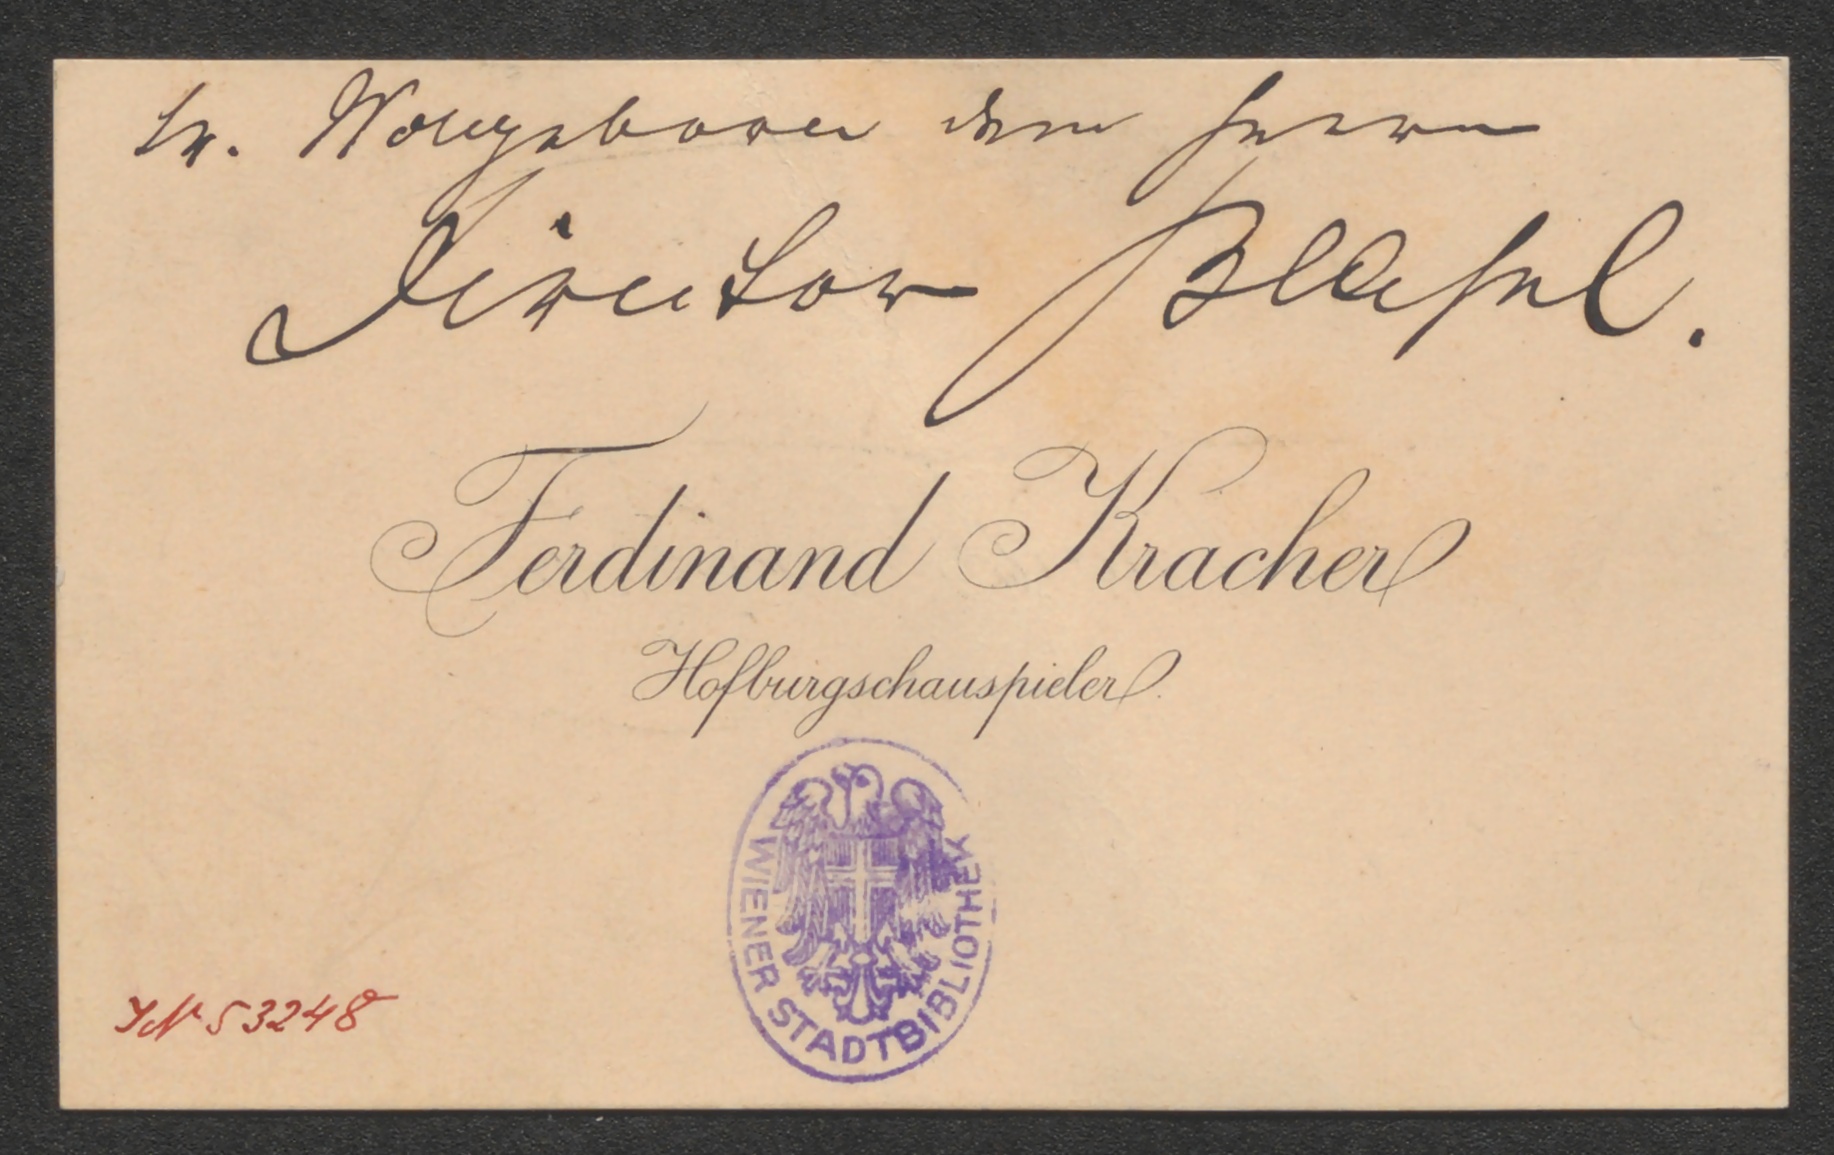 Sr. Wolgeboren dem Herrn
Director Blasel.
Ferdinand Kracher
Hofburgschauspieler.
WIENER STADTBIBLIOTHEK
IN 53248